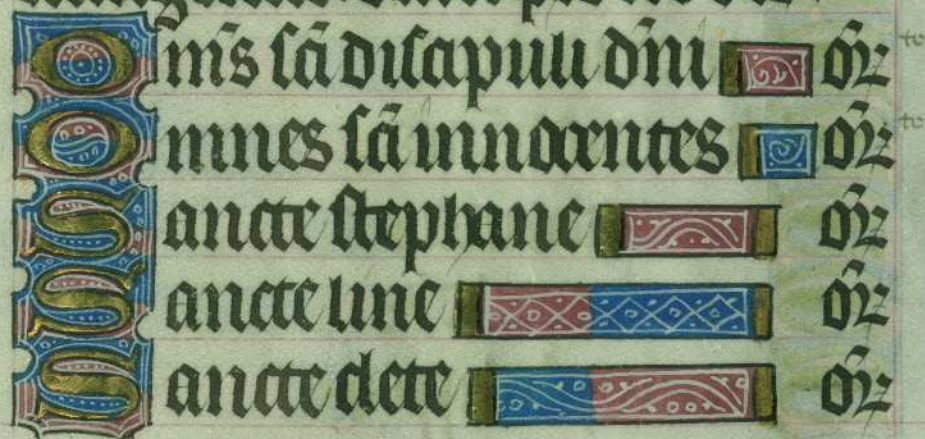 Om̄s sc̄i discipuli dn̄i or̄
Omnes sc̄i innocentes or̄
Sancte stephane or̄
Sancte line or̄
Sancte clete or̄